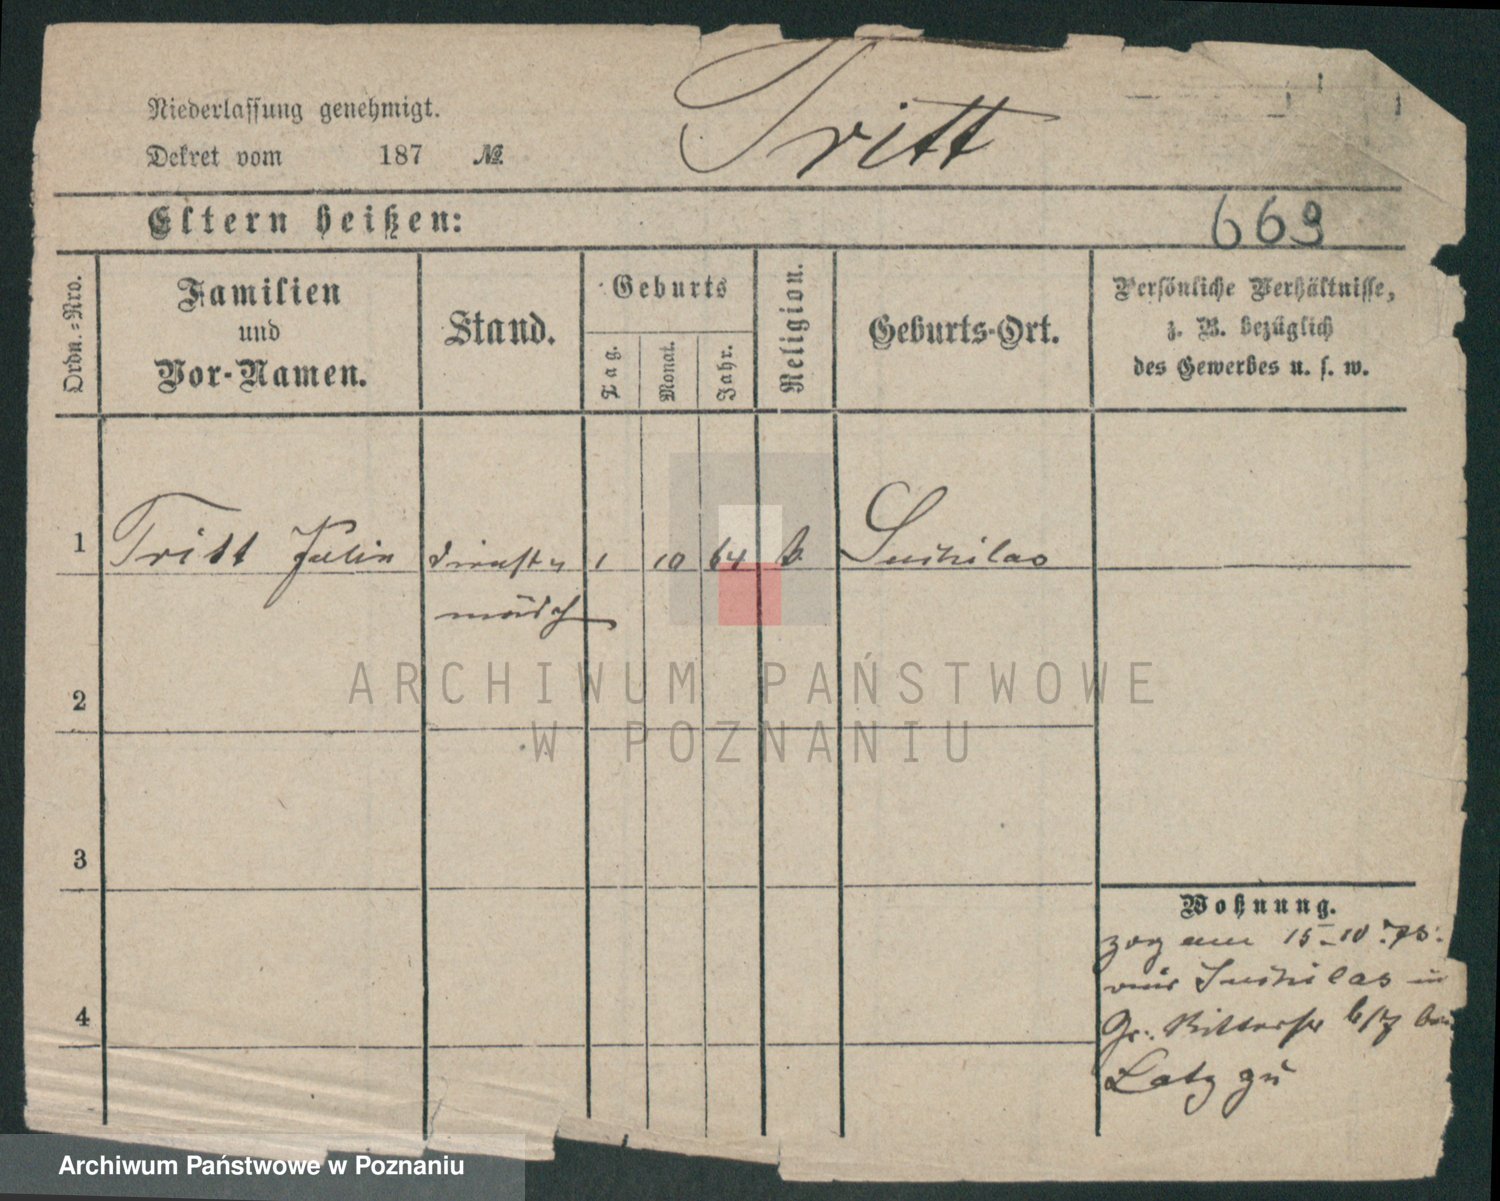 Niederlassung genehmigt.
Dekret vom 187 №
Tritt
Eltern heißen:
669
Ordn.-Nro.
Familien
und
Vor-Namen.
Stand.
Geburts
Tag.
Monat.
Jahr.
Religion.
Geburts-Ort.
Persönliche Verhältnisse,
z. B. bezüglich
des Gewerbes u. s. w.
1 Tritt Julia Dienst- 1 10 64 k. Suchilas
mädch
2
3
4
Wohnung.
zog am 15-10.
aus Suchilas in
Gr. Ritterstr bei
Latz zu
ARCHIWUM PAŃSTWOWE
W POZNANIU
Archiwum Państwowe w Poznaniu